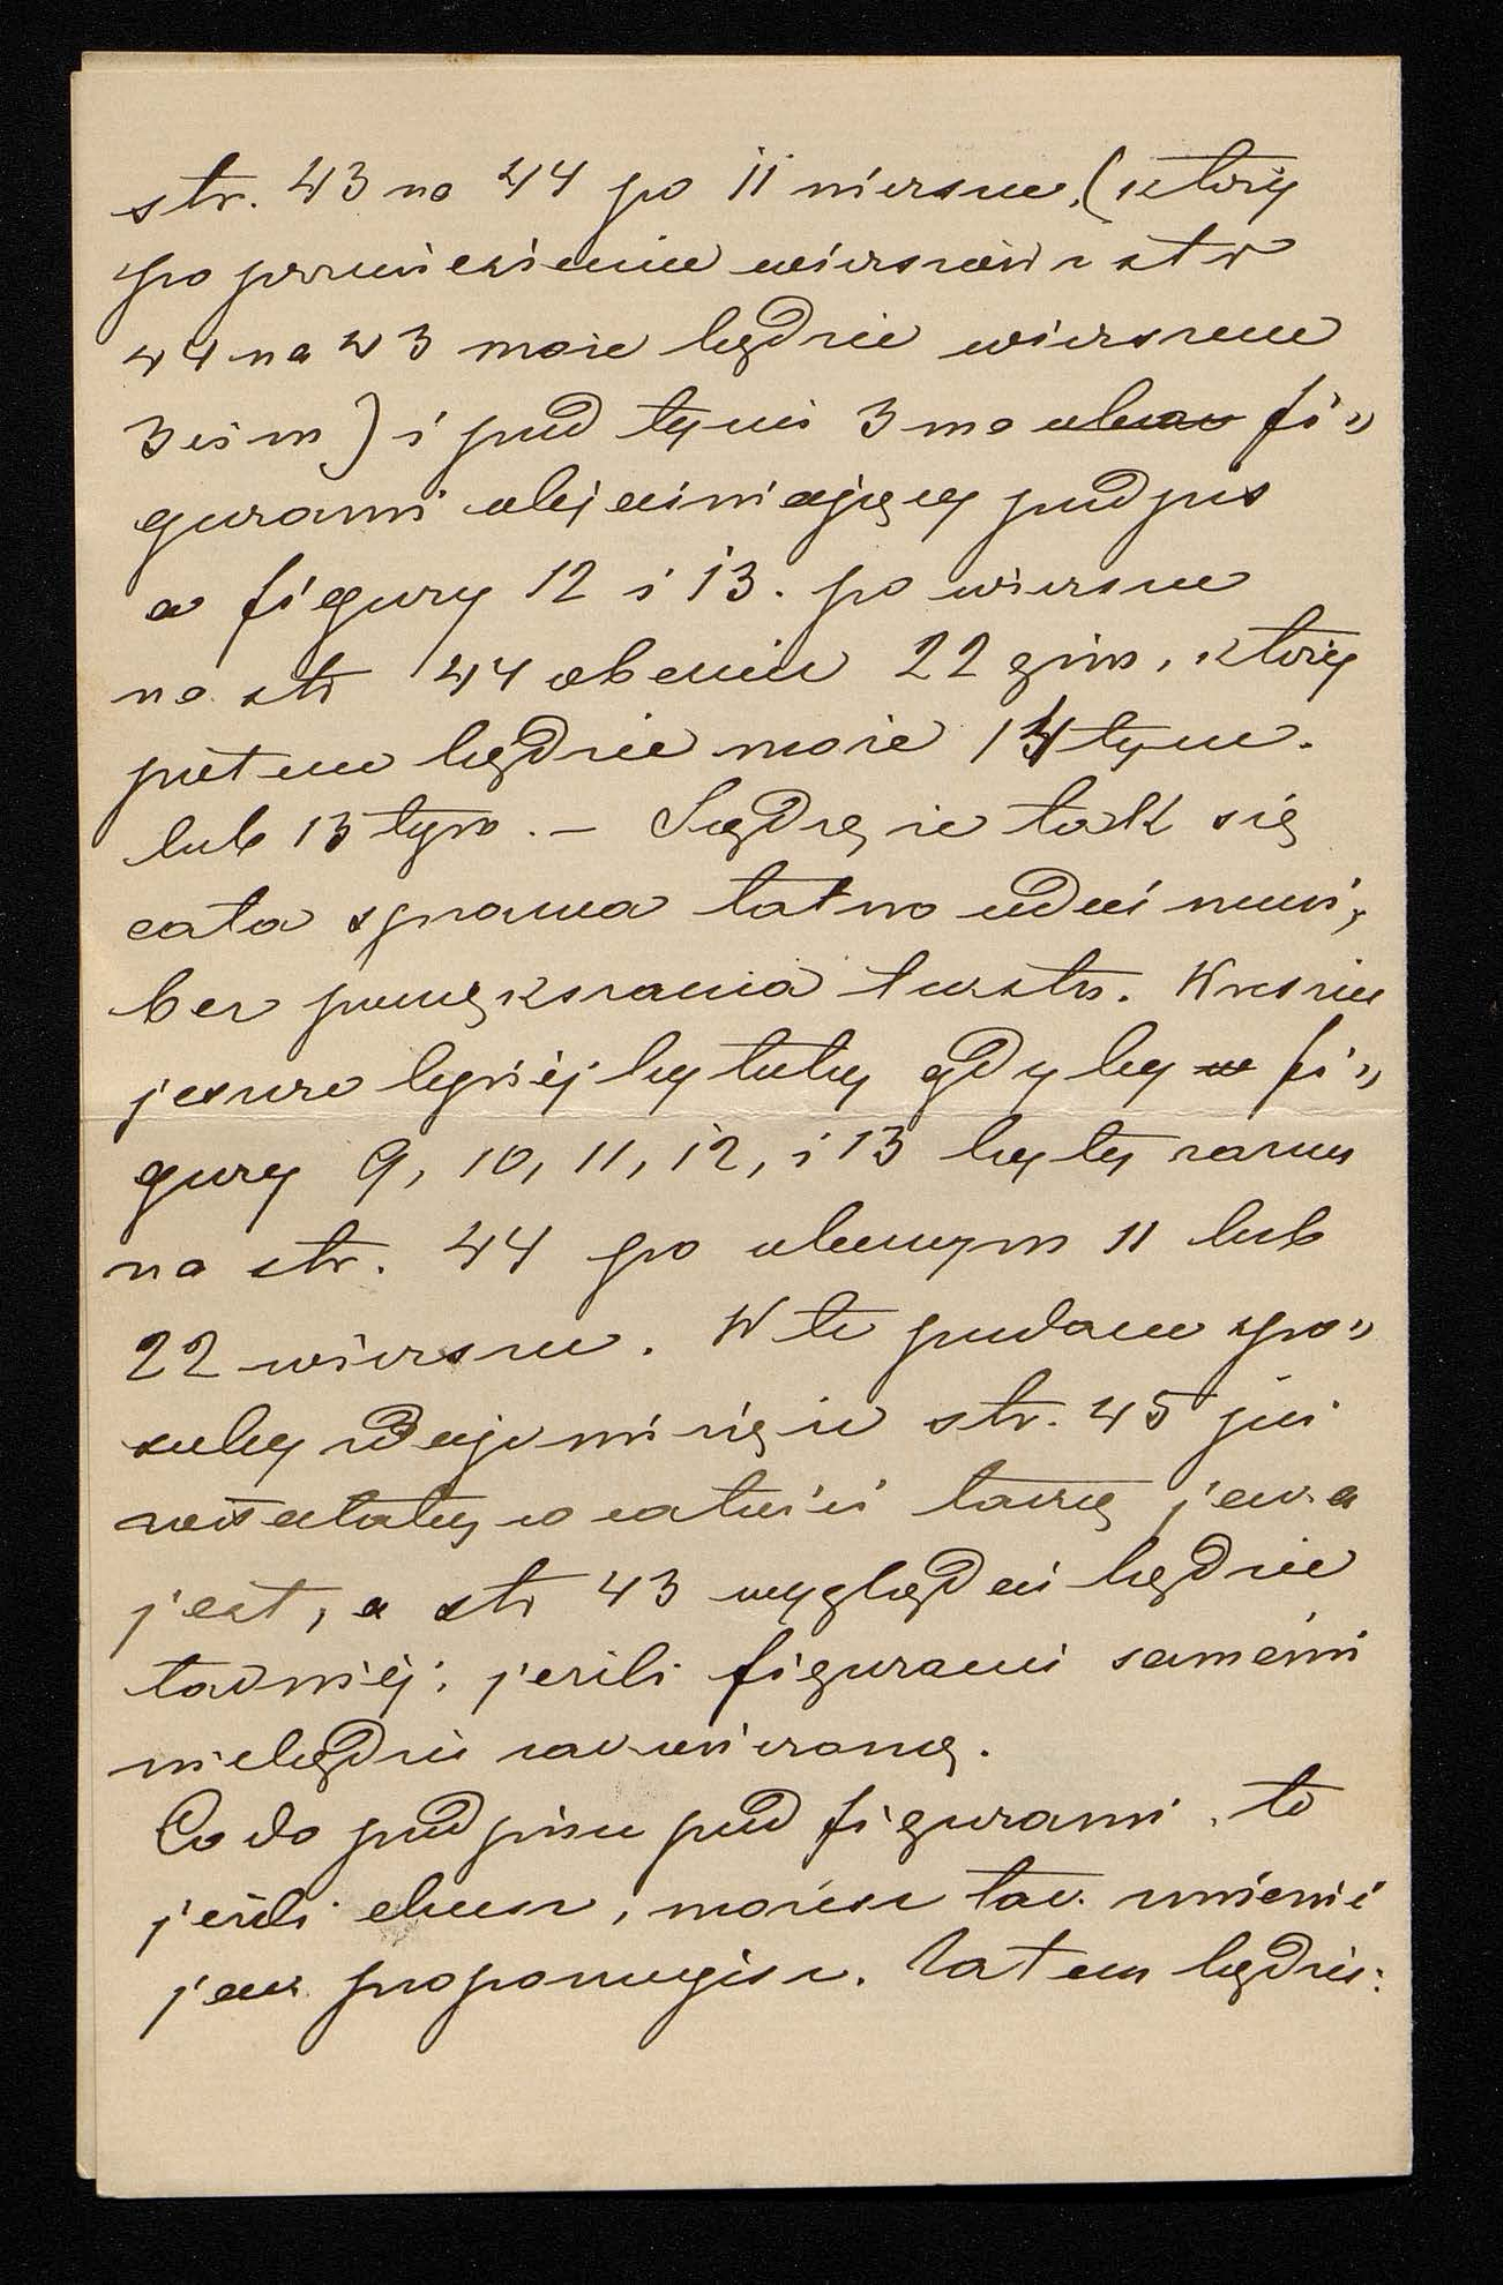 str. 43 na 44 po 11 wierszu, (który
po przeniesieniu wierszów z str
44 na 43 może będzie wierszem
3cim) i pod tymi 3ma obec fi„
gurami objaśniający podpis
a figury 12 i 13. po wierszu
na str 44 obecnie 22gim, który
potem będzie może 14tym.
lub 13tym. – Sądzę że tak się
cała sprawa łatwo udać musi,
bez powiększania tekstu. Wreszcie
jeszcze lepiej byłoby gdyby w fi„
gury 9, 10, 11, 12, i 13 były razem
na str. 44 po obecnym 11 lub
22 wierszu. W te podane spo„
soby zdaje mi się że str. 45 już
zostałaby w całości taką jaka
jest, a str 43 wyglądać będzie
ładniej; jeżeli figurami samemi
niebędzie zawieraną.
Co do podpisu pod figurami, to
jeżeli chcesz, możesz tak zmienić
jak proponujesz. Zatem będzie: